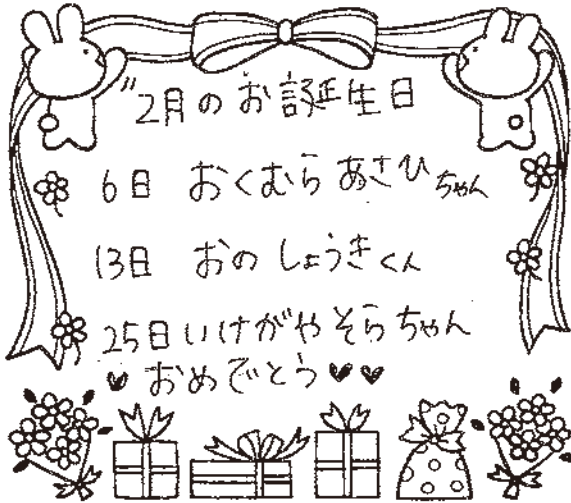 "2月のお誕生日
6日 おくむら あさひちゃん
13日 おの しょうきくん
25日 いけがや そらちゃん
おめでとう